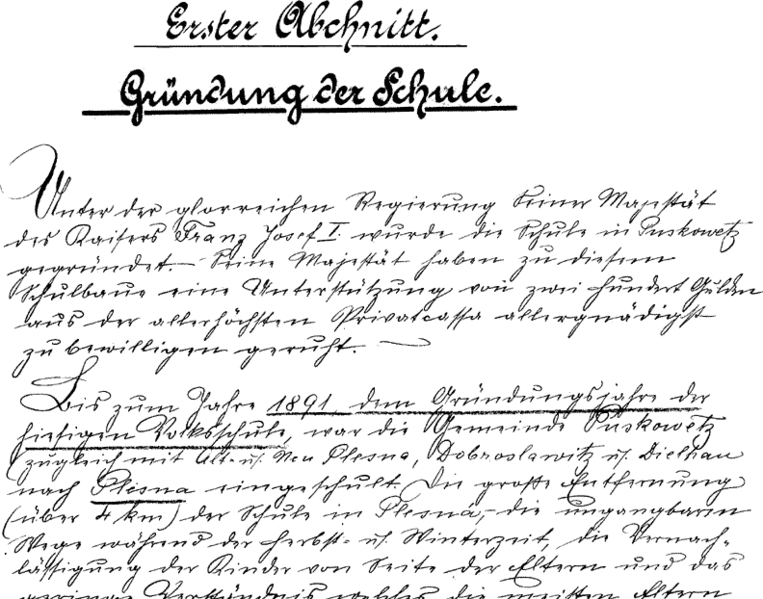 Erster Abschnitt.
Gründung der Schule.
Unter der glorreichen Regierung Seiner Majestät
des Kaisers Franz Josef I. wurde die Schule in Puskowetz
gegründet. — Seine Majestät haben zu diesem
Schulbaue eine Unterstützung von zwei hundert Gulden
aus der allerhöchsten Privatcassa allergnädigst
zu bewilligen geruht. —
Bis zum Jahre 1891 dem Gründungsjahre der
hiesigen Volksschule, war die Gemeinde Puskowetz
zugleich mit Alt- u. Neu Plesna, Dobroslawitz u. Dielhau
nach Plesna eingeschult. Die große Entfernung
(über 4 km) der Schule in Plesná, die ungangbaren
Wege während der Herbst- u. Winterzeit, die Vernach-
lässigung der Kinder von Seite der Eltern und das
geringe Verständnis welches die meisten Eltern